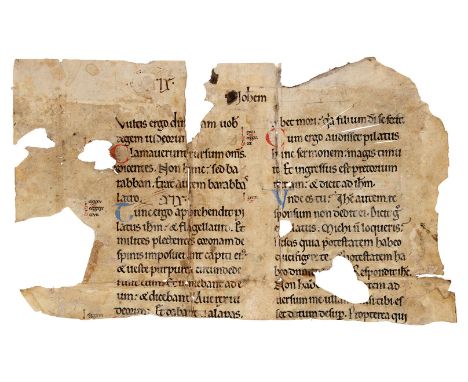 Johem
Vultis ergo dim am uob
regem iudeorum
Clamauerunt rursum om̅s
dicentes. Non hunc: sed ba
rabban. Erat autem barabba
latro.
Tunc ergo apprehendit pi
latus ihm: & flagellauit. Et
milites plectentes coronam de
spinis imposuer capiti ei
& ueste purpurea circumdede
runt eum. Et ueniebant ad
eum: & dicebant. Aue rex iu
deorum: Et dabant alapas.
bet mori: qa filium di se fecit.
Cum ergo audisset pilatus
hunc sermonem: magis timu
it. Et ingressus est pretorium
iterum: & dicit ad ihm.
Vnde es tu. Ihc autem re
sponsum non dedit ei. Dicit g
latus. Michi n̅ loqueris?
nescis quia potestatem habeo
te & potestatem ha
dimi Respondit ihc.
Non hab tem ad
uersum me ullam tibi es
set datum desup. Propterea qui